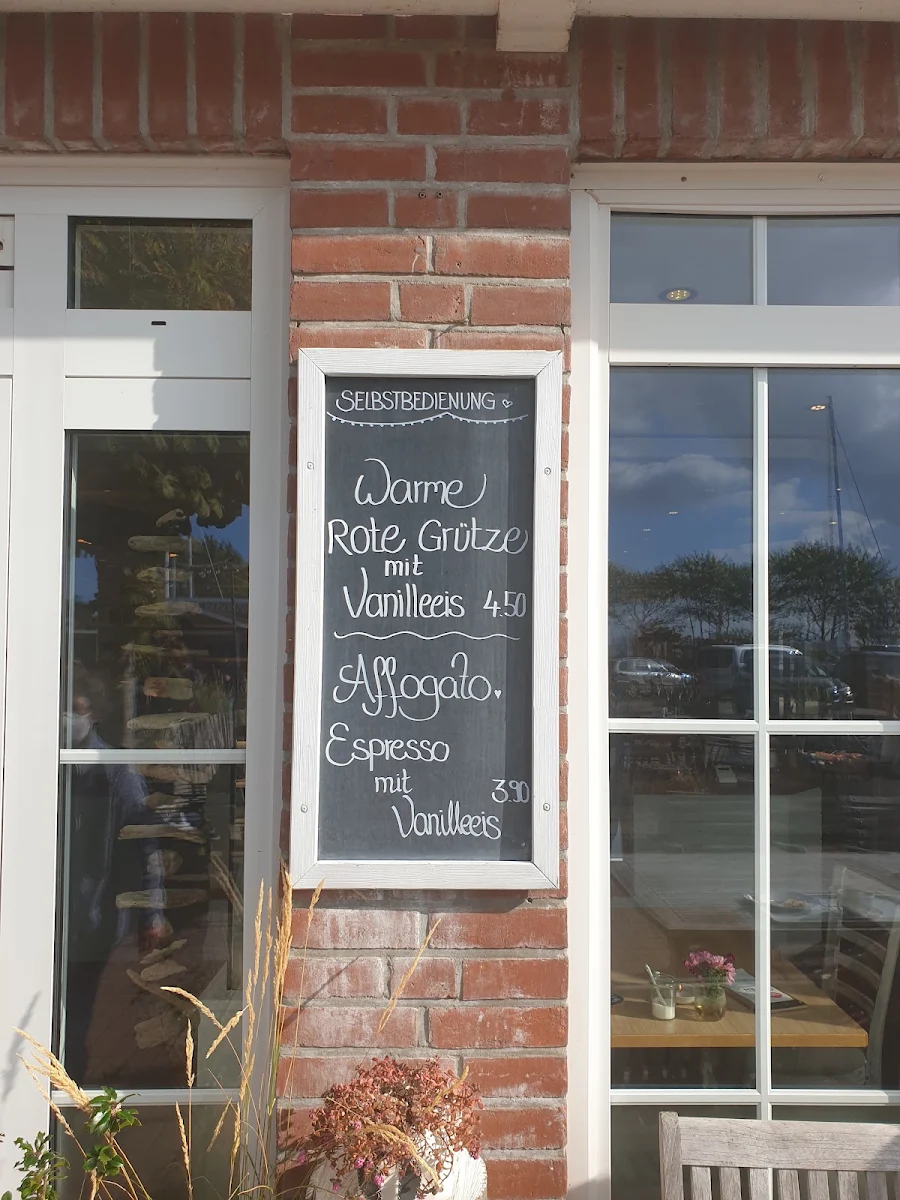 SELBSTBEDIENUNG
Warme
Rote Grütze
mit
Vanilleeis 4.50
Affogato
Espresso
mit
3.90
Vanilleeis